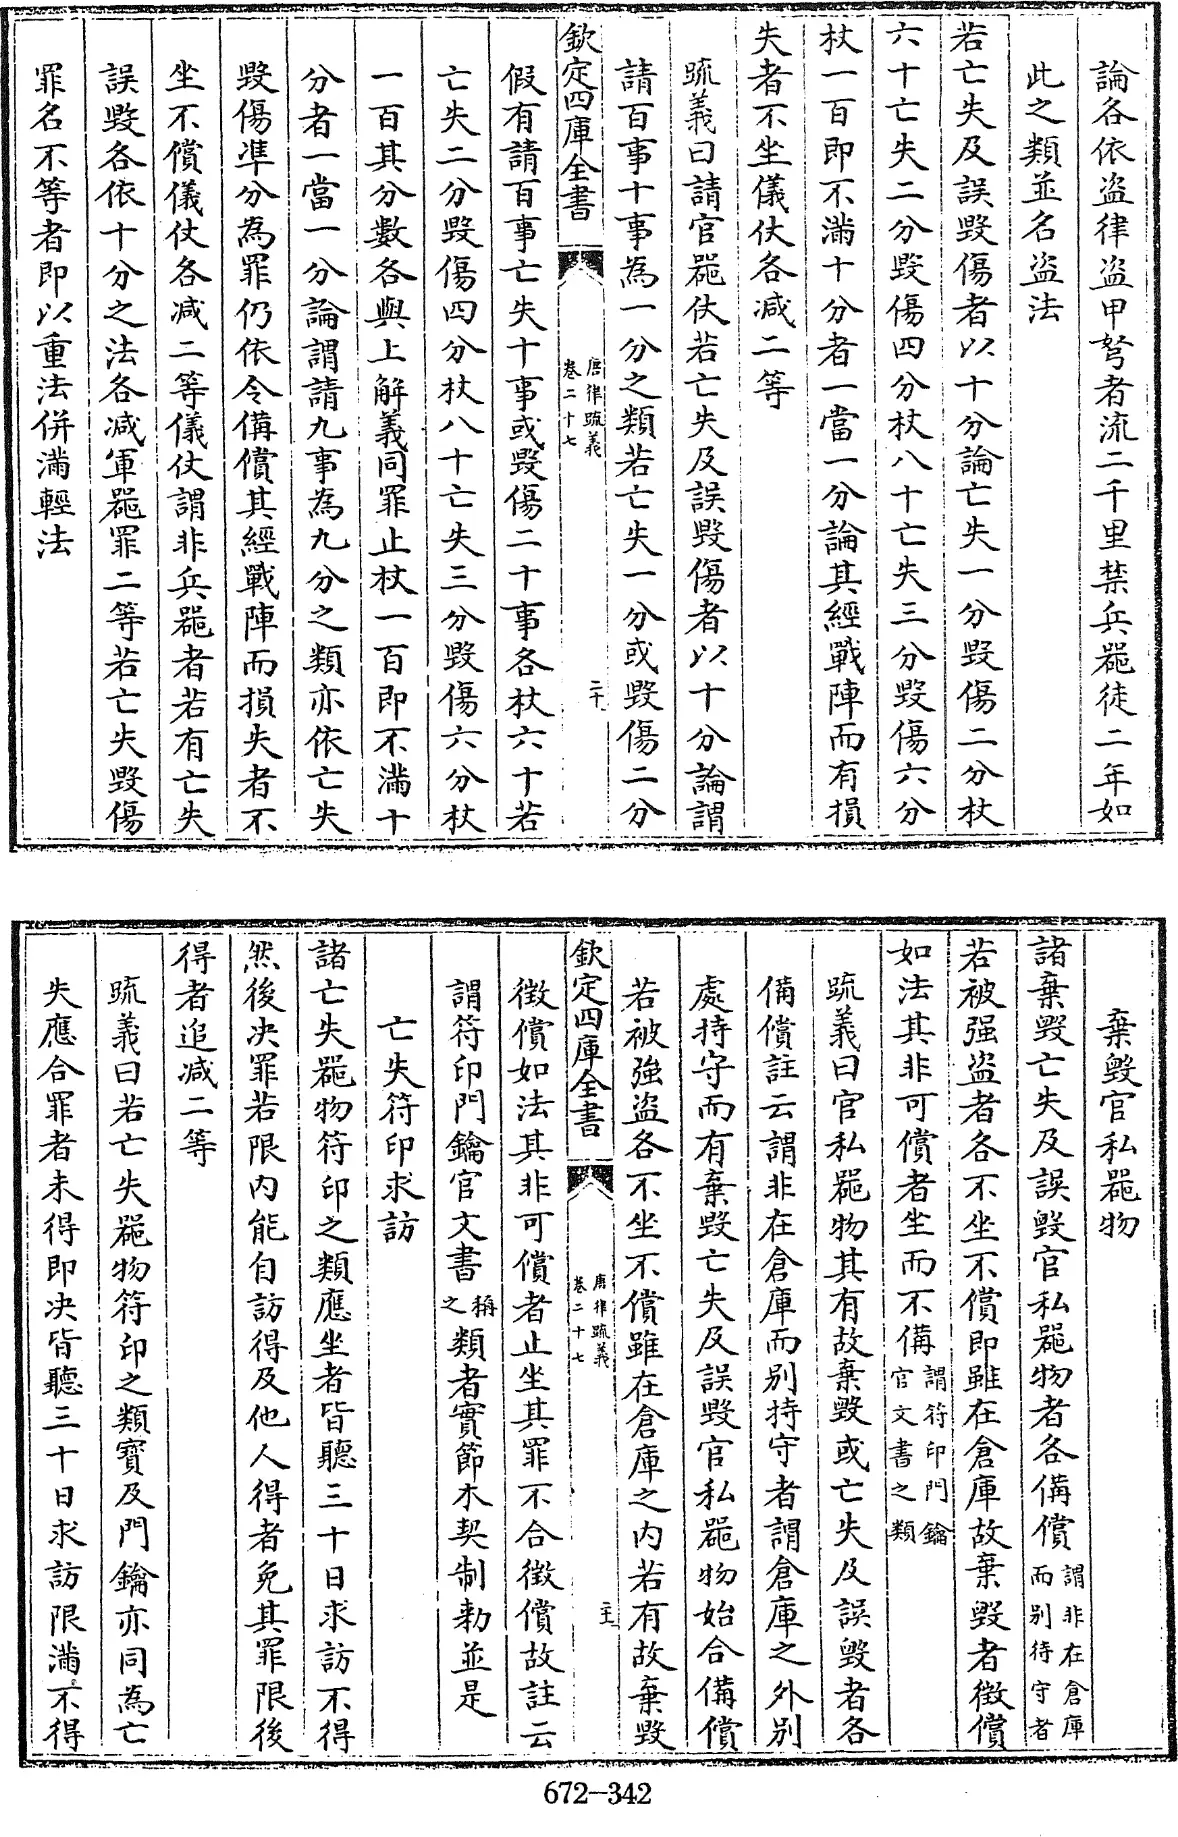 論各依盗律盗甲弩者流二千里禁兵器徒二年如
此之類並名盗法
若亡失及誤毁傷者以十分論亡失一分毁傷二分杖
六十亡失二分毁傷四分杖八十亡失三分毁傷六分
杖一百即不滿十分者一當一分論其經戰陣而有損
失者不坐儀仗各减二等
疏義曰請官器仗若亡失及誤毁傷者以十分論謂
請百事十事為一分之類若亡失一分或毁傷二分
欽定四庫全書
唐律疏義
卷二十七
二十
假有請百事亡失十事或毁傷二十事各杖六十若
亡失二分毁傷四分杖八十亡失三分毁傷六分杖
一百其分數各與上解義同罪止杖一百即不滿十
分者一當一分論謂請九事為九分之類亦依亡失
毁傷準分為罪仍依令備償其經戰陣而損失者不
坐不償儀仗各减二等儀仗謂非兵器者若有亡失
誤毁各依十分之法各减軍器罪二等若亡失毁傷
罪名不等者即以重法併滿輕法
棄毁官私器物
諸棄毁亡失及誤毁官私器物者各備償謂非在倉庫
而别待守者
若被强盗者各不坐不償即雖在倉庫故棄毁者徴償
如法其非可償者坐而不備謂符印門鑰
官文書之類
疏義曰官私器物其有故棄毁或亡失及誤毁者各
備償註云謂非在倉庫而别持守者謂倉庫之外别
處持守而有棄毁亡失及誤毁官私器物始合備償
若被強盗各不坐不償雖在倉庫之内若有故棄毁
欽定四庫全書
唐律疏義
卷二十七
二十一
徴償如法其非可償者止坐其罪不合徴償故註云
謂符印門鑰官文書稱
之類者實節木契制勅並是
亡失符印求訪
諸亡失器物符印之類應坐者皆聽三十日求訪不得
然後决罪若限内能自訪得及他人得者免其罪限後
得者追减二等
疏義曰若亡失器物符印之類寶及門鑰亦同為亡
失應合罪者未得即决皆聽三十日求訪限滿不得
672-342